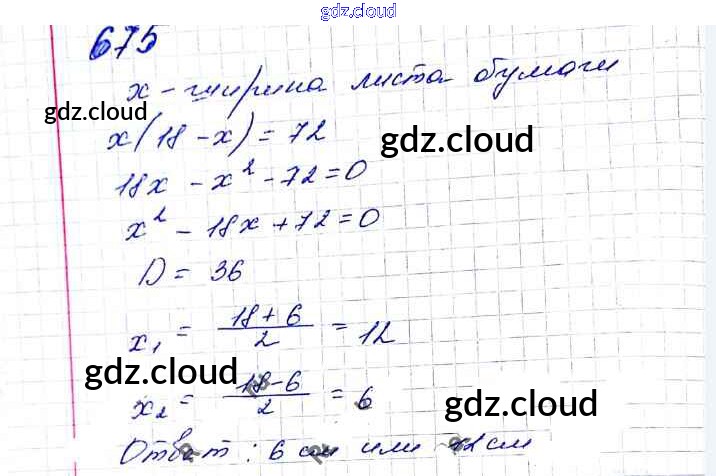 gdz.cloud
675
x - ширина листа бумаги
gdz.cloud
x(18 - x) = 72
gdz.cloud
18x - x² - 72 = 0
x² - 18x + 72 = 0
D = 36
x₁ = (18 + 6)/2 = 12
gdz.cloud
x₂ = (18 - 6)/2 = 6
gdz.cloud
Ответ: 6 см или 12 см